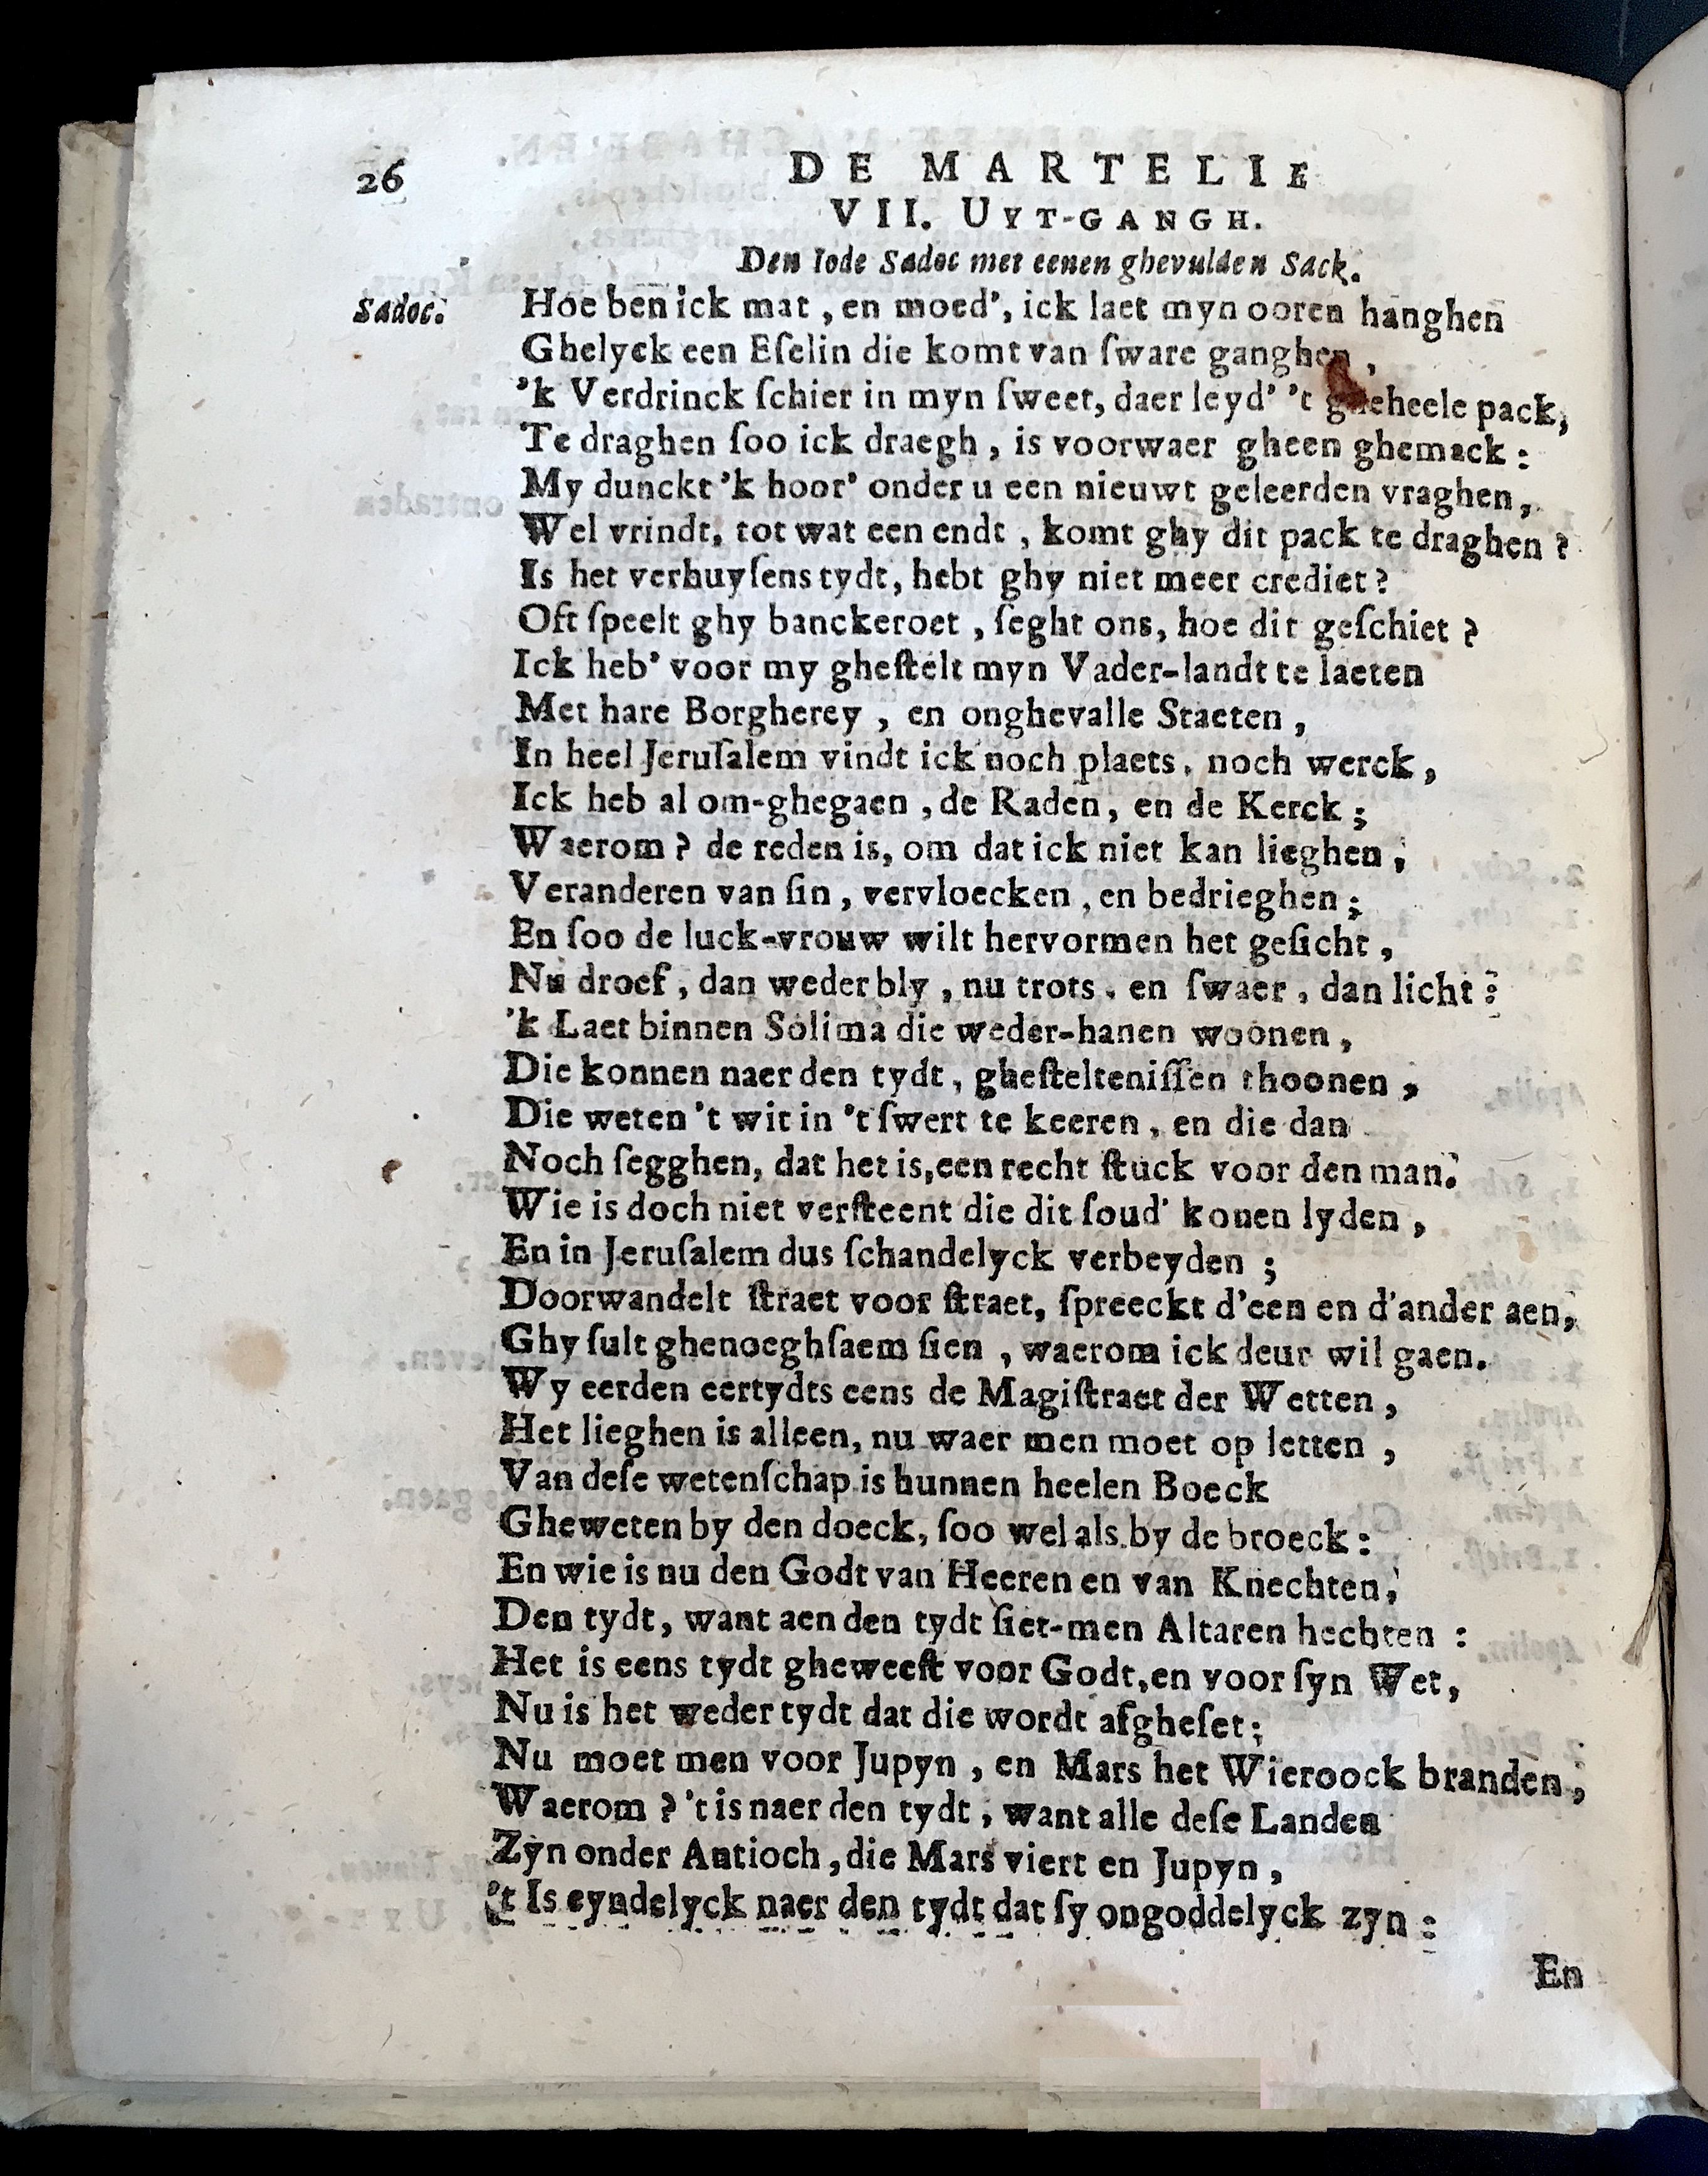 26 DE MARTELIE
VII. UYT-GANGH.
Den Iode Sadoc met eenen ghevulden Sack.
Sadoc. Hoe ben ick mat, en moed', ick laet myn ooren hanghen
Ghelyck een Eſelin die komt van ſware ganghen,
'k Verdrinck ſchier in myn ſweet, daer leyd' 't gheheele pack,
Te draghen ſoo ick draegh, is voorwaer gheen ghemack:
My dunckt 'k hoor' onder u een nieuwt geleerden vraghen,
Wel vrindt, tot wat een endt, komt ghy dit pack te draghen?
Is het verhuyſens tydt, hebt ghy niet meer crediet?
Oft ſpeelt ghy banckeroet, ſeght ons, hoe dit geſchiet?
Ick heb' voor my gheſtelt myn Vader-landt te laeten
Met hare Borgherey, en onghevalle Staeten,
In heel Jeruſalem vindt ick noch plaets, noch werck,
Ick heb al om-ghegaen, de Raden, en de Kerck;
Waerom? de reden is, om dat ick niet kan lieghen,
Veranderen van ſin, vervloecken, en bedrieghen;
En ſoo de luck-vrouw wilt hervormen het geſicht,
Nu droef, dan weder bly, nu trots, en ſwaer, dan licht:
'k Laet binnen Solima die weder-hanen woonen,
Die konnen naer den tydt, gheſtelteniſſen thoonen,
Die weten 't wit in 't ſwert te keeren, en die dan
Noch ſegghen, dat het is, een recht ſtuck voor den man.
Wie is doch niet verſteent die dit ſoud' konen lyden,
En in Jeruſalem dus ſchandelyck verbeyden;
Doorwandelt ſtraet voor ſtraet, ſpreeckt d'een en d'ander aen,
Ghy ſult ghenoeghſaem ſien, waerom ick deur wil gaen.
Wy eerden eertydts eens de Magiſtraet der Wetten,
Het lieghen is alleen, nu waer men moet op letten,
Van deſe wetenſchap is hunnen heelen Boeck
Gheweten by den doeck, ſoo wel als by de broeck:
En wie is nu den Godt van Heeren en van Knechten,
Den tydt, want aen den tydt ſiet-men Altaren hechten:
Het is eens tydt gheweeſt voor Godt, en voor ſyn Wet,
Nu is het weder tydt dat die wordt afgheſet;
Nu moet men voor Jupyn, en Mars het Wieroock branden,
Waerom? 't is naer den tydt, want alle deſe Landen
Zyn onder Antioch, die Mars viert en Jupyn,
't Is eyndelyck naer den tydt dat ſy ongoddelyck zyn:
En